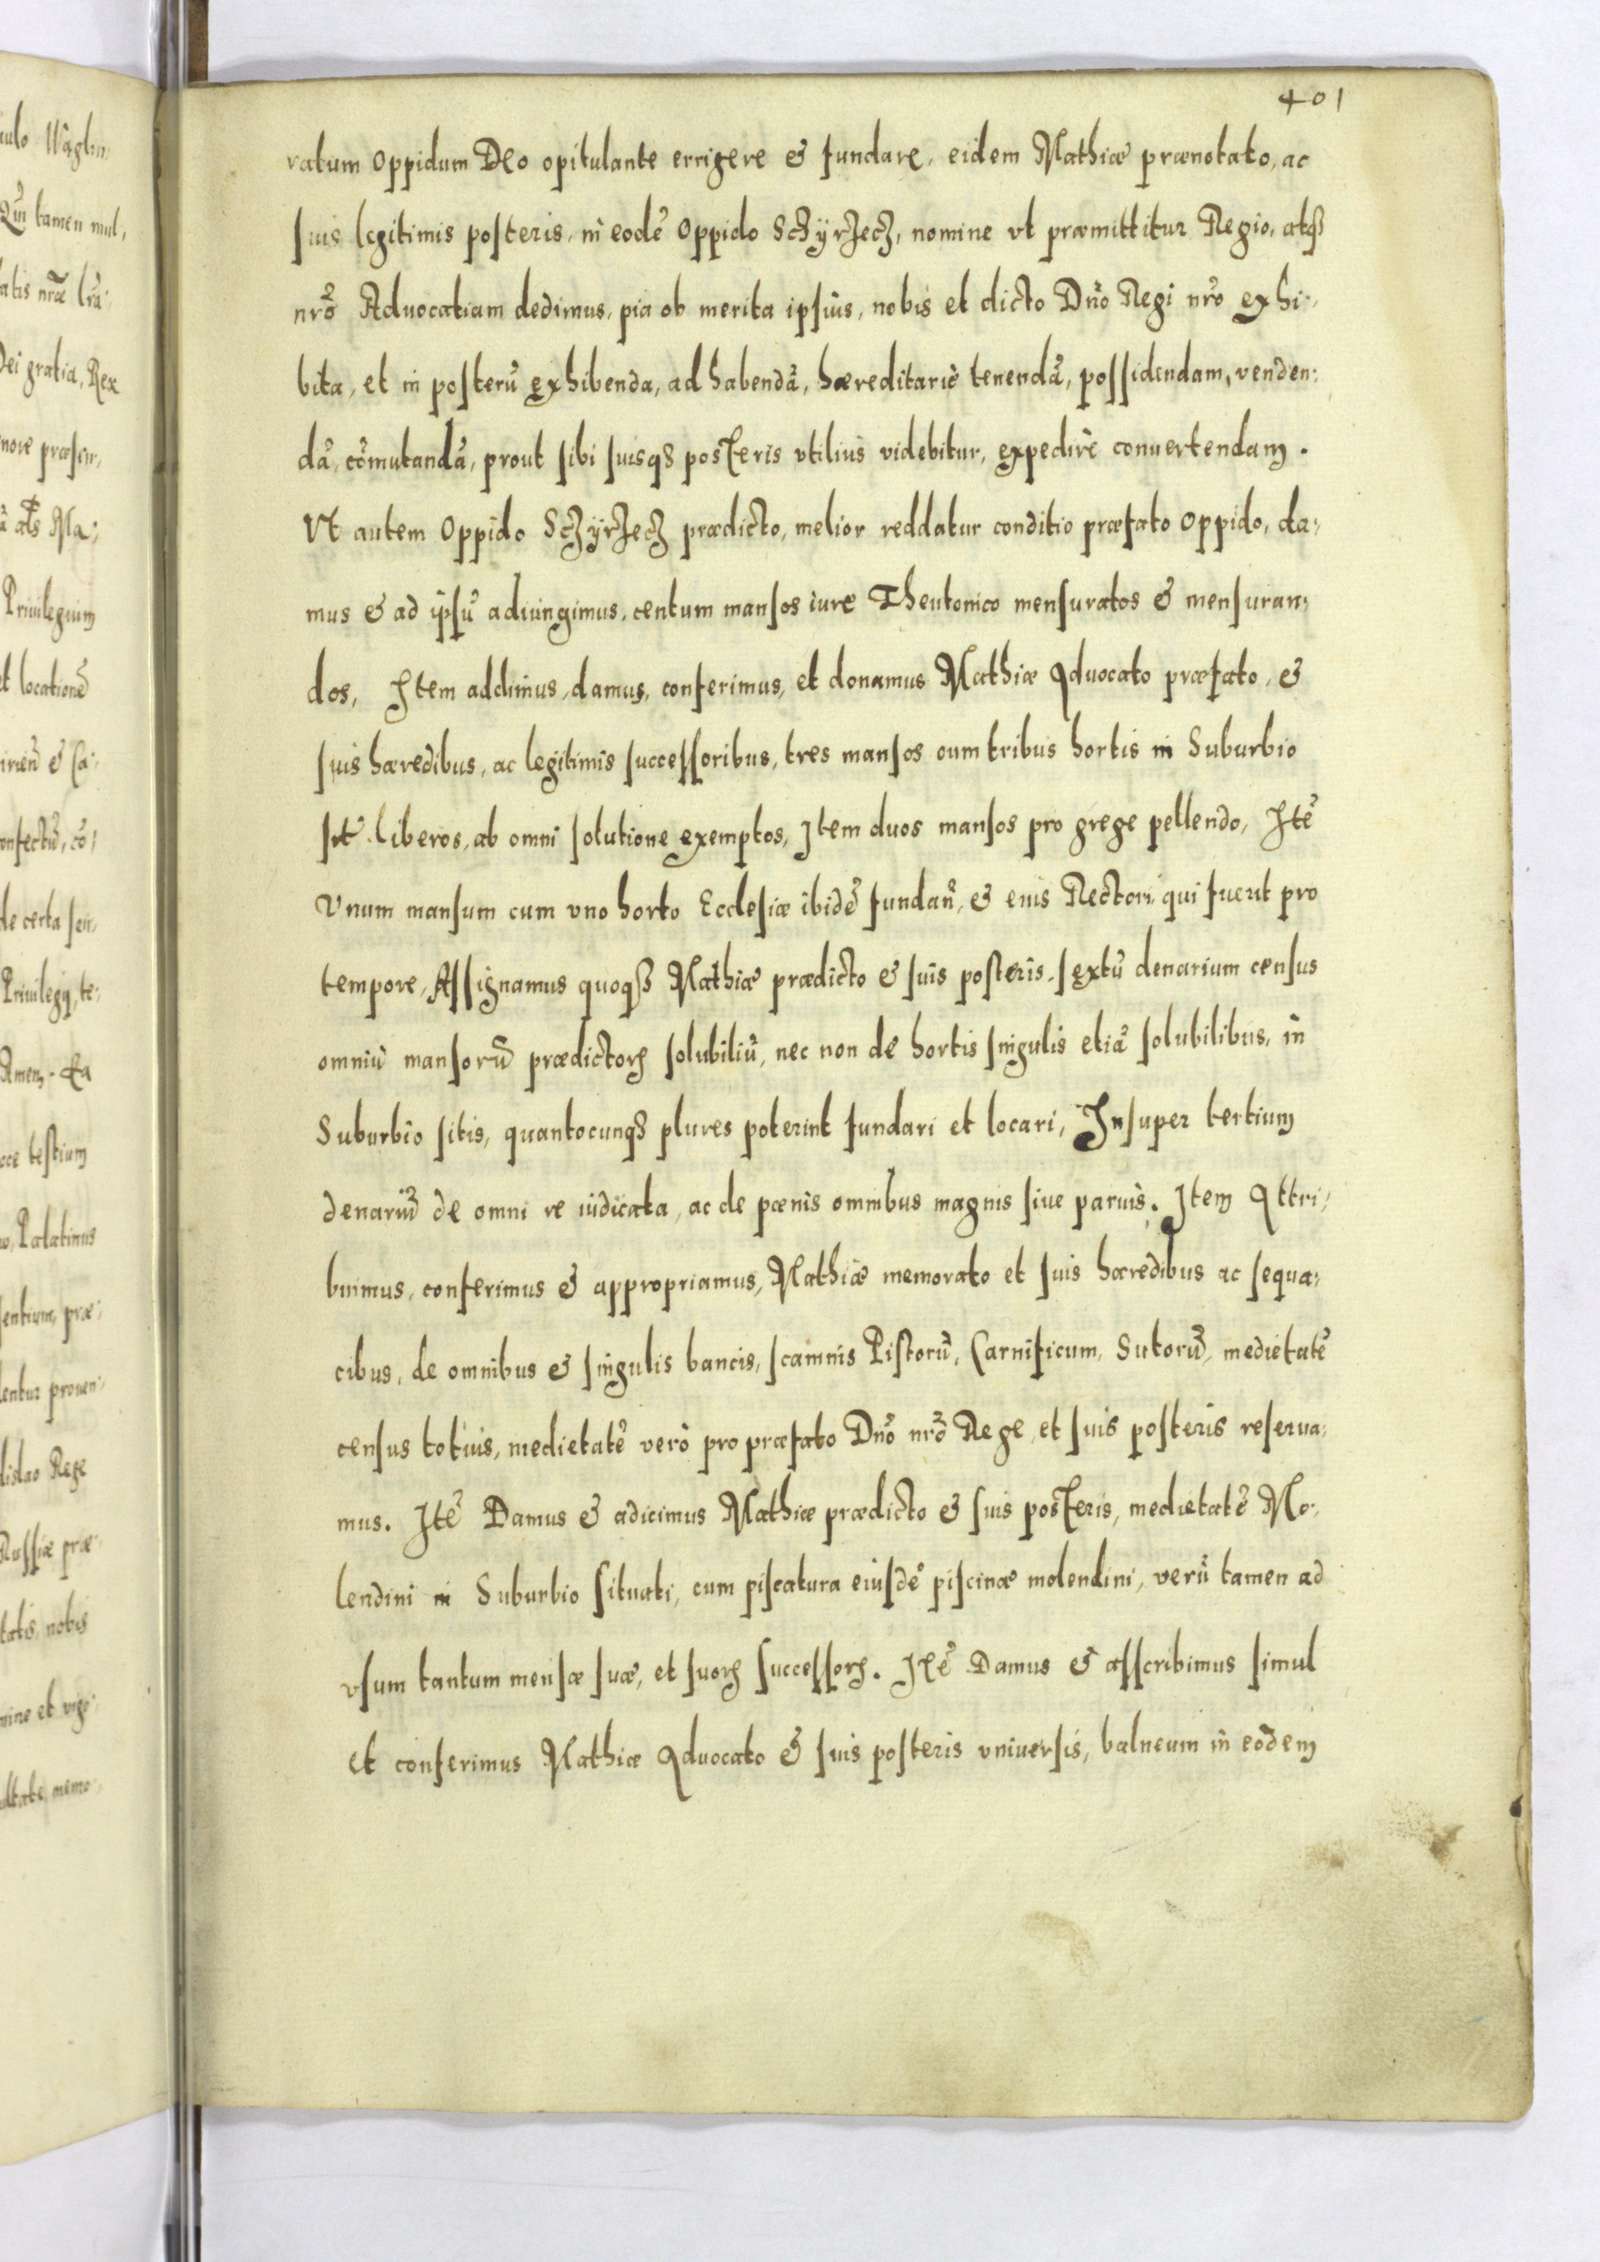 401
ratum Oppidum Deo opitulante errigere & fundare, eidem Mathiæ prænotato, ac
suis legitimis posteris, in eodē Oppido Sczyrzecz, nomine vt præmittitur Regio, atq3
nrō Aduocatiam dedimus, pia ob merita ipsius, nobis et dicto Dño Regi nrō exhi-
bita, et in posterū exhibenda, ad habendā, hæreditariè tenendā, possidendam, venden:
dā, cōmutandā, prout sibi suisq3 posteris vtilius videbitur, expedirè conuertendam.
Vt autem Oppido Sczÿrzecz prædicto, melior reddatur conditio præfato Oppido, da:
mus & ad ipsū adiungimus, centum mansos iure Theutonico mensuratos & mensuran:
dos, Item addimus, damus, conferimus, et donamus Mathiæ Aduocato præfato, &
suis hæredibus, ac legitimis successoribus, tres mansos cum tribus hortis in Suburbio
liberos, ab omni solutione exemptos, Item duos mansos pro grege pellendo, Itē
Vnum mansum cum vno horto Ecclesiæ ibidē fundañ, & eius Rectori, qui fuerit pro
tempore, Assignamus quoq3 Mathiæ prædicto & suis posteris, sextū denarium census
omniū mansorū prædictorɥ solubiliū, nec non de hortis singulis etiā solubilibus, in
Suburbio sitis, quantocunq3 plures poterint fundari et locari, Insuper tertium
denariū de omni re iudicata, ac de pœnis omnibus magnis siue paruis. Item Attri:
buimus, conferimus & appropriamus, Mathiæ memorato et suis hæredibus ac sequa:
cibus, de omnibus & singulis bancis, scamnis Pistorū, Carnificum, Sutorū, medietatē
census totius, medietatē verò pro præfato Dñō nrō Rege, et suis posteris reserua:
mus. Itē Damus & adicimus Mathiæ prædicto & suis posteris, medietatē Mo:
lendini in Suburbio situati, cum piscatura eiusdē piscinæ molendini, verū tamen ad
vsum tantum mensæ suæ, et suorɥ successorɥ. Itē Damus & asscribimus simul
et conferimus Mathiæ Aduocato & suis posteris vniuersis, balneum in eodem